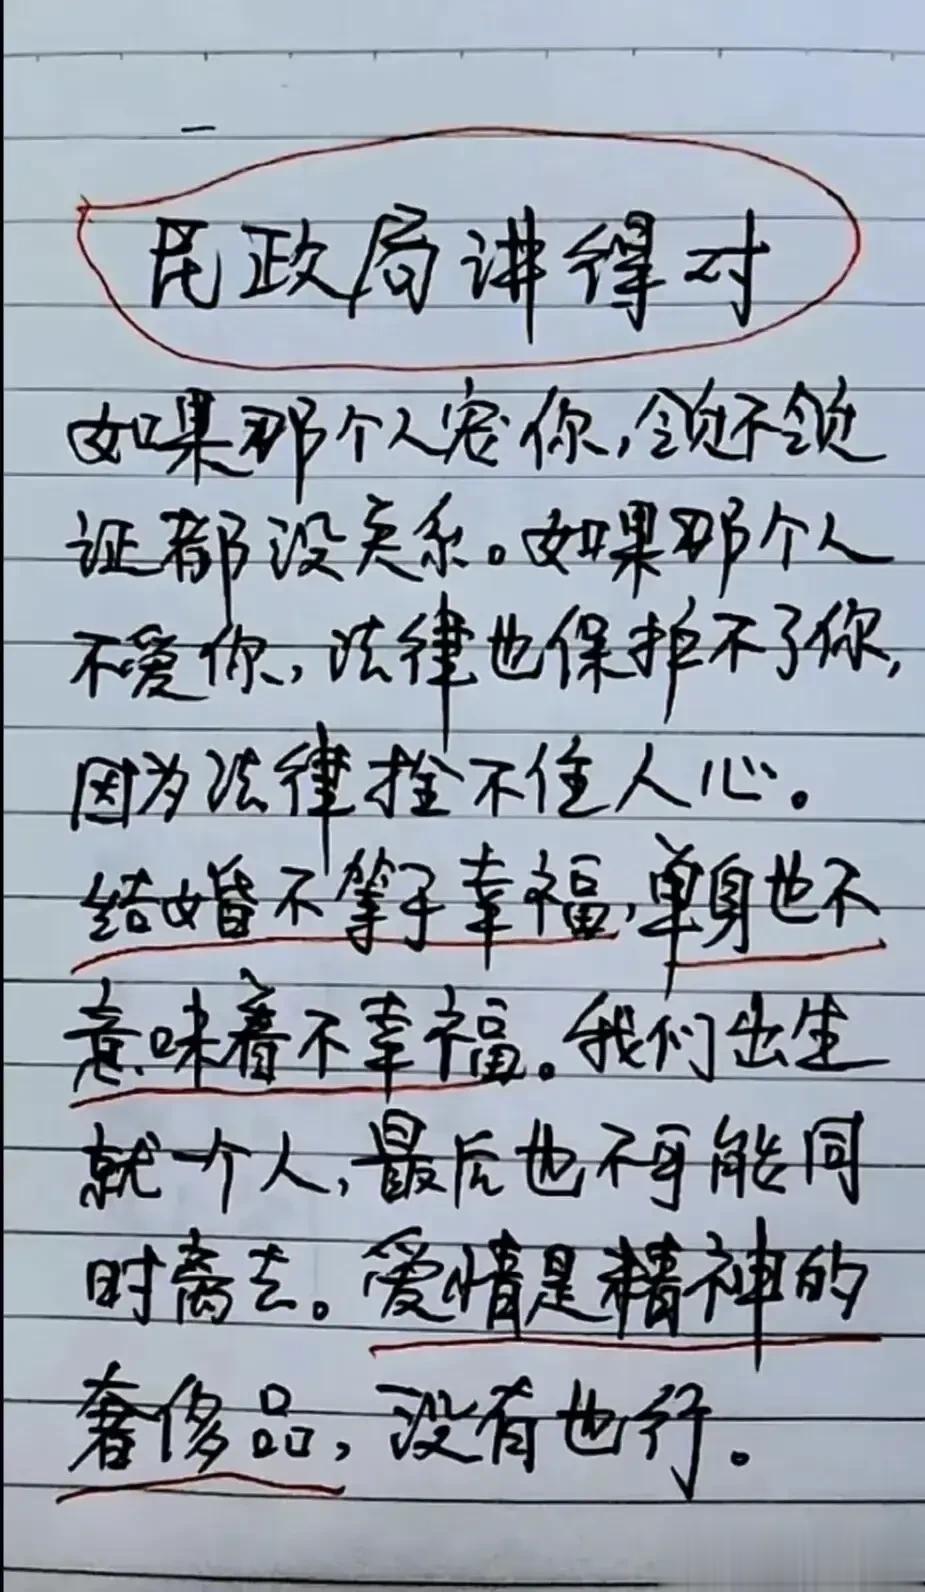 民政局讲得对
如果那个人宠你,领不领
证都没关系。如果那个人
不爱你,法律也保护不了你,
因为法律拴不住人心。
结婚不等于幸福,单身也不
意味着不幸福。我们出生
就一个人,最后也不可能同
时离去。爱情是精神的
奢侈品,没有也行。